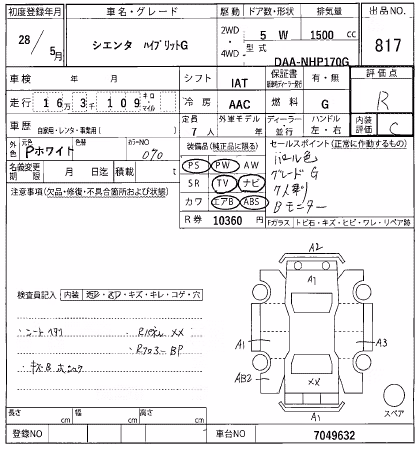 初度登録年月 車名・グレード 駆動 ドア数・形状 排気量 出品NO.
28 / 5月 シエンタ ハイブリットG 2WD・4WD 5 W 1500 cc 817
型式 DAA-NHP170G
車検 年 月 シフト IAT 保証書 有・無 評価点
走行 16万3千109 キロ・マイル 冷房 AAC 燃料 G R
車歴 自家用・レンタ・事業用( ) 定員 7人 外車モデル 年 ディーラー・並行 ハンドル 左・右 内装評価 C
外色 元色 Pホワイト 色替 カラーNO 070 装備品(純正品に限る) セールスポイント(正常に作動するもの)
名義変更期限 月 日迄 積載 t PS PW AW パール色
注意事項(欠品・修復・不具合箇所および状態) SR TV ナビ グレードG
カワ エアB ABS 7人乗り
R券 10360 円 Bモニター
Fガラス・トビ石・キズ・ヒビ・ワレ・リペア跡
A2
A1
検査員記入 内装 キズ・キレ・コゲ・穴
シートヘタリ XX
A1 A3
BP
AB2 XX
A1 スペア
長さ cm 幅 cm 高さ cm
登録NO 車台NO 7049632